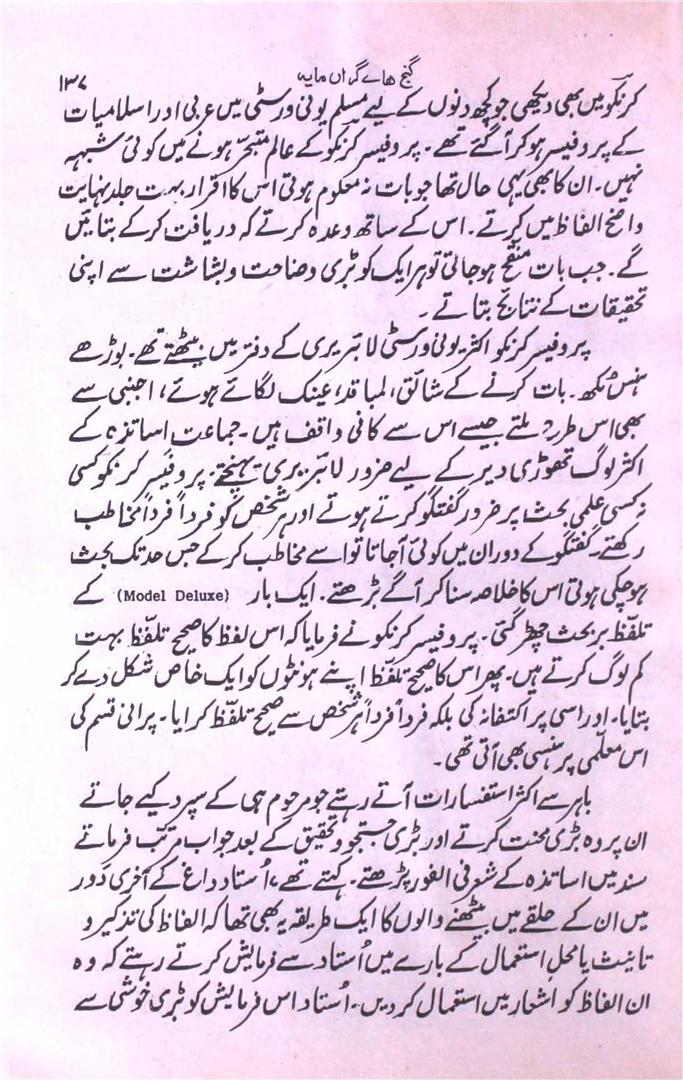 گنج ھاے گراں مایہ
۱۳۷
کرنکو میں بھی دیکھی جو کچھ دنوں کے لیے مسلم یونی ورسٹی میں عربی اور اسلامیات
کے پروفیسر ہو کر آگئے تھے۔ پروفیسر کرنکو کے عالم متبحّر ہونے میں کوئی شبہہ
نہیں۔ ان کا بھی یہی حال تھا جو بات نہ معلوم ہوتی اس کا اقرار بہت جلد نہایت
واضح الفاظ میں کرتے۔ اس کے ساتھ وعدہ کرتے کہ دریافت کرکے بتائیں
گے۔ جب بات منقح ہو جاتی تو ہر ایک کو بڑی وضاحت و بشاشت سے اپنی
تحقیقات کے نتایج بتاتے۔
پروفیسر کرنکو اکثر یونی ورسٹی لائبریری کے دفتر میں بیٹھتے تھے۔ بوڑھے
ہنس مُکھ۔ بات کرنے کے شائق، لمبا قد، عینک لگائے ہوئے، اجنبی سے
بھی اس طرح ملتے جیسے اس سے کافی واقف ہیں۔ جماعت اساتذہ کے
اکثر لوگ تھوڑی دیر کے لیے ضرور لائبریری پہنچتے۔ پروفیسر کرنکو کسی
نہ کسی علمی بحث پر ضرور گفتگو کرتے ہوتے اور ہر شخص کو فرداً فرداً مخاطب
رکھتے۔ گفتگو کے دوران میں کوئی آجاتا تو اسے مخاطب کرکے جس حد تک بحث
ہوچکی ہوتی اس کا خلاصہ سنا کر آگے بڑھتے۔ ایک بار (Model Deluxe) کے
تلفّظ پر بحث چھڑ گئی۔ پروفیسر کرنکو نے فرمایا کہ اس لفظ کا صحیح تلفّظ بہت
کم لوگ کرتے ہیں۔ پھر اس کا صحیح تلفّظ اپنے ہونٹوں کو ایک خاص شکل دے کر
بتایا۔ اور اسی پر اکتفا نہ کی بلکہ فرداً فرداً ہر شخص سے صحیح تلفّظ کرایا۔ پرانی قسم کی
اس معلّمی پر ہنسی بھی آتی تھی۔
باہر سے اکثر استفسارات آتے رہتے جو مرحوم ہی کے سپرد کیے جاتے
ان پر وہ بڑی محنت کرتے اور بڑی جستجو و تحقیق کے بعد جواب مرتب فرماتے
سند میں اساتذہ کے شعر فی الفور پڑھتے۔ کہتے تھے، اُستاد داغ کے آخری دَور
میں ان کے حلقے میں بیٹھنے والوں کا ایک طریقہ یہ بھی تھا کہ الفاظ کی تذکیر و
تانیث یا محلِ استعمال کے بارے میں اُستاد سے فرمایش کرتے رہتے کہ وہ
ان الفاظ کو اشعار میں استعمال کردیں۔ اُستاد اس فرمایش کو بڑی خوشی سے